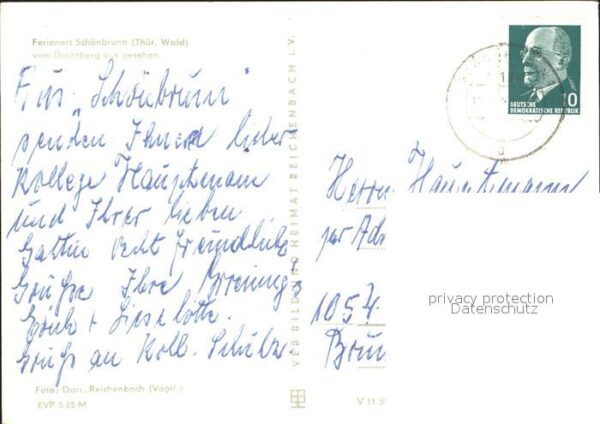 Ferienort Schönbrunn (Thür. Wald)
vom Drahtberg aus gesehen
Aus "Schönbrunn"
senden Ihnen lieber
Kollege Hauptmann
und Ihrer lieben
Gattin recht freundliche
Grüße Ihre
Erich + Lieselotte.
Gruß an Koll. Schulze
Foto: Darr, Reichenbach (Vogtl.)
EVP 0,25 M
VEB BILD UND HEIMAT REICHENBACH i. V.
V 11
10
DEUTSCHE
DEMOKRATISCHE REPUBLIK
Herrn Hauptmann
per Ads
1054
privacy protection
Datenschutz